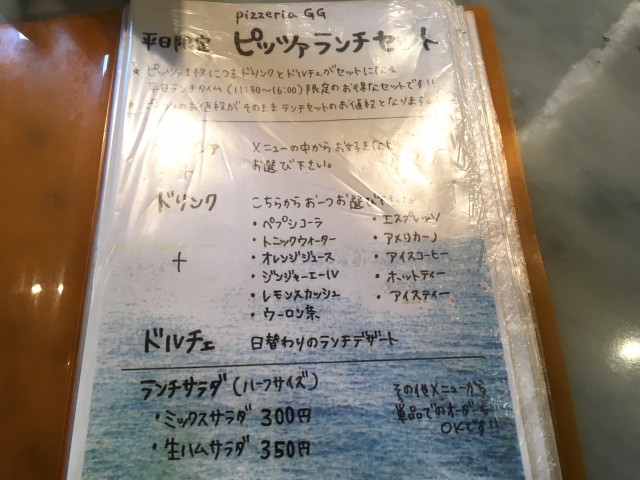 pizzeria GG
平日限定 ピッツァランチセット
★ ピッツァ1枚につきドリンクとドルチェがセットになる
平日ランチタイム (11:30〜16:00) 限定のお得なセットです!!
のお値段がそのままランチセットのお値段となります。
メニューの中からお好きな
お選び下さい。
+
ドリンク こちらからお一つお選び
・ペプシコーラ ・エスプレッソ
・トニックウォーター ・アメリカーノ
+ ・オレンジジュース ・アイスコーヒー
・ジンジャーエール ・ホットティー
・レモンスカッシュ ・アイスティー
・ウーロン茶
ドルチェ 日替わりのランチデザート
ランチサラダ (ハーフサイズ)
・ミックスサラダ 300円
・生ハムサラダ 350円
その他メニューから
単品でのオーダーも
OKです!!